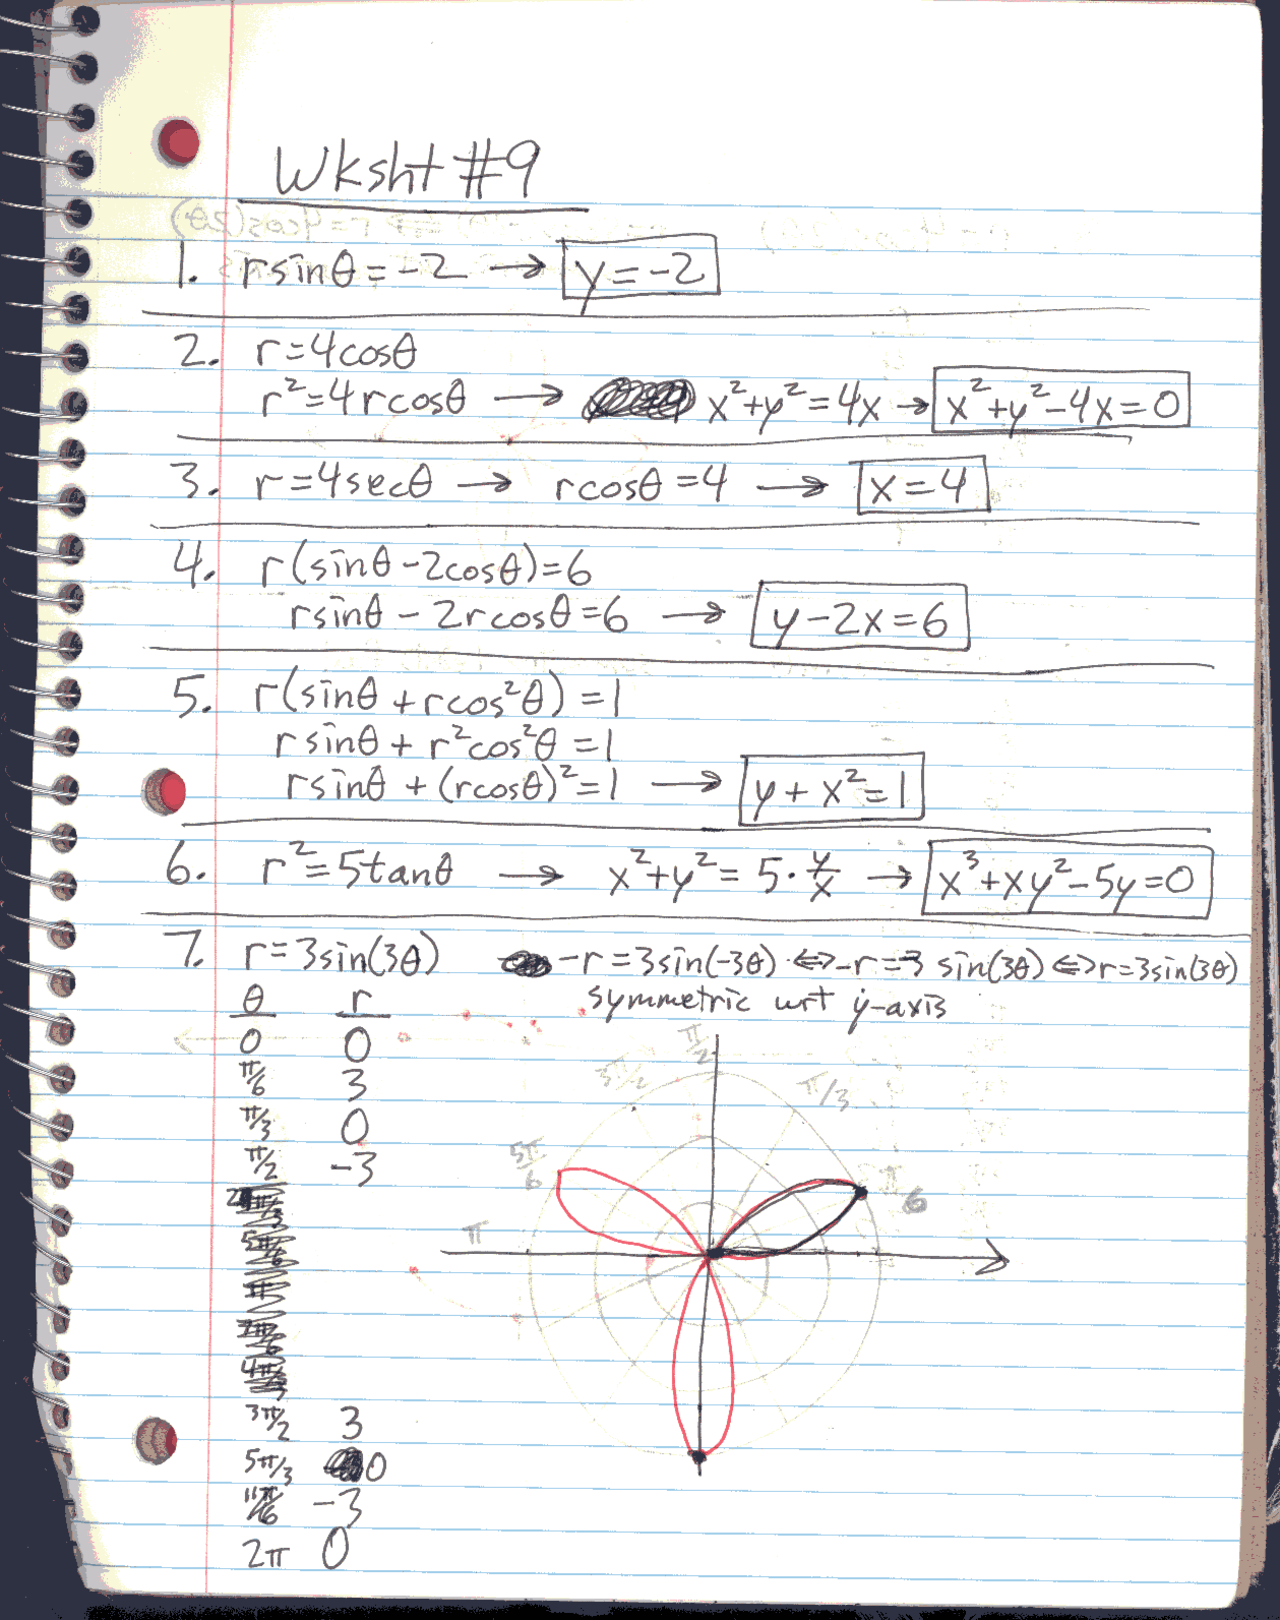 Wksht #9
1. rsinθ = -2 → y = -2
2. r = 4cosθ
r² = 4rcosθ → x² + y² = 4x → x² + y² - 4x = 0
3. r = 4secθ → rcosθ = 4 → x = 4
4. r(sinθ - 2cosθ) = 6
rsinθ - 2rcosθ = 6 → y - 2x = 6
5. r(sinθ + rcos²θ) = 1
rsinθ + r²cos²θ = 1
rsinθ + (rcosθ)² = 1 → y + x² = 1
6. r² = 5tanθ → x² + y² = 5 · y/x → x³ + xy² - 5y = 0
7. r = 3sin(3θ) -r = 3sin(-3θ) ⇔ -r = -3 sin(3θ) ⇔ r = 3sin(3θ)
symmetric wrt y-axis
θ r
0 0
π/6 3
π/3 0
π/2 -3
3π/2 3
5π/3 0
11π/6 -3
2π 0
π/2
π/3
5π/6
π/6
π